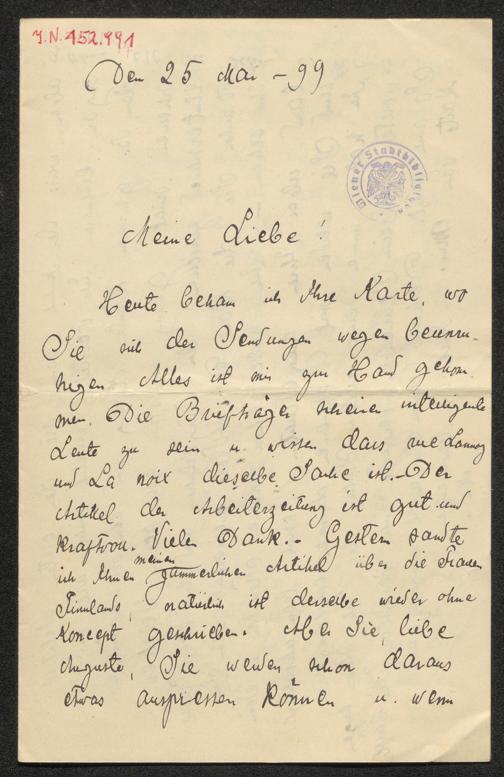 J.N. 152.991
Den 25 Mai - 99
Wiener Stadtbibliothek
Meine Liebe!
Heute bekam ich Ihre Karte, wo
Sie sich der Sendungen wegen beunru-
higen. Alles ist mir zur Hand gekom-
men. Die Briefträger scheinen intelligente
Leute zu sein u. wissen dass rue Lannoy
und La noix dieselbe Sache ist. - Der
Artikel der Arbeiterzeitung ist gut und
kraftvoll. Vielen Dank. - Gestern sandte
ich Ihnen meinen jämmerlichen Artikel über die Frauen
Finnlands, natürlich ist derselbe wieder ohne
Koncept geschrieben. Aber Sie, liebe
Auguste, Sie werden schon daraus
etwas auspressen können u. wenn